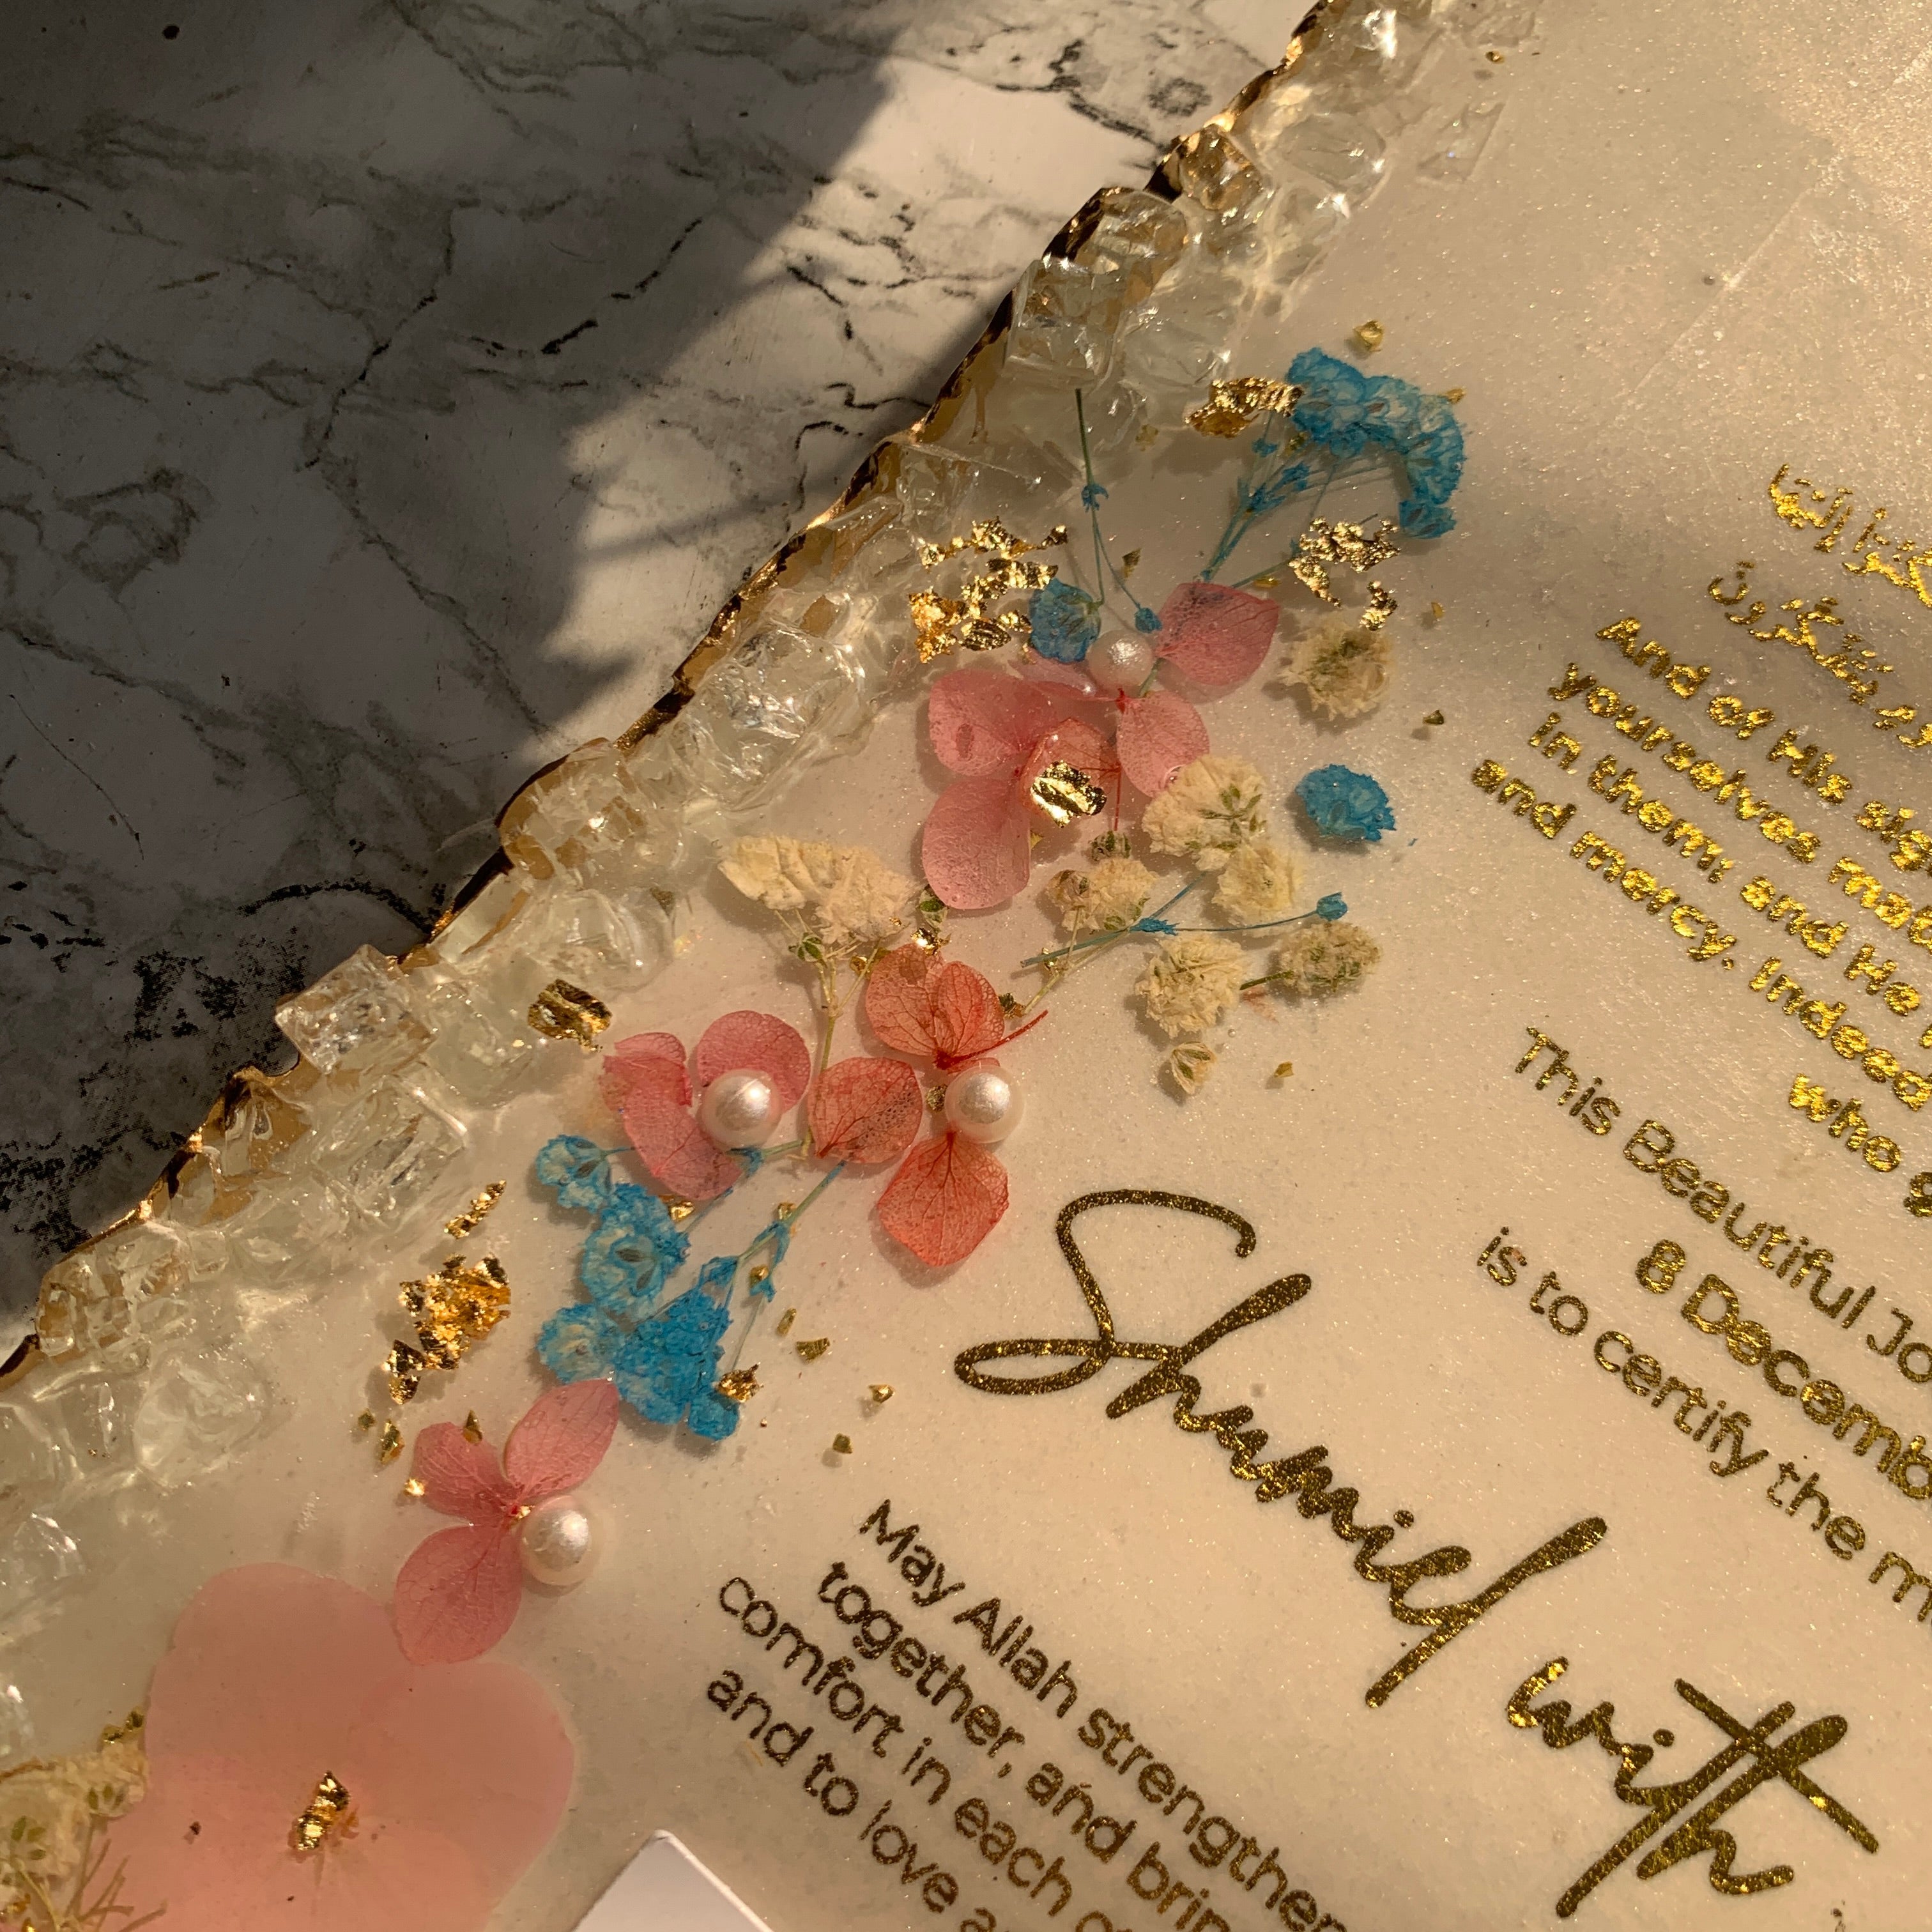 لِّتَسْكُنُوا إِلَيْهَا
يَتَفَكَّرُونَ
And of His sig
yourselves mat
in them; and He
and mercy. Indeed
who g
This Beautiful Jo
8 Decemb
is to certify the m
Shumiel with
May Allah strengthen
together, and brin
comfort in each o
and to love a